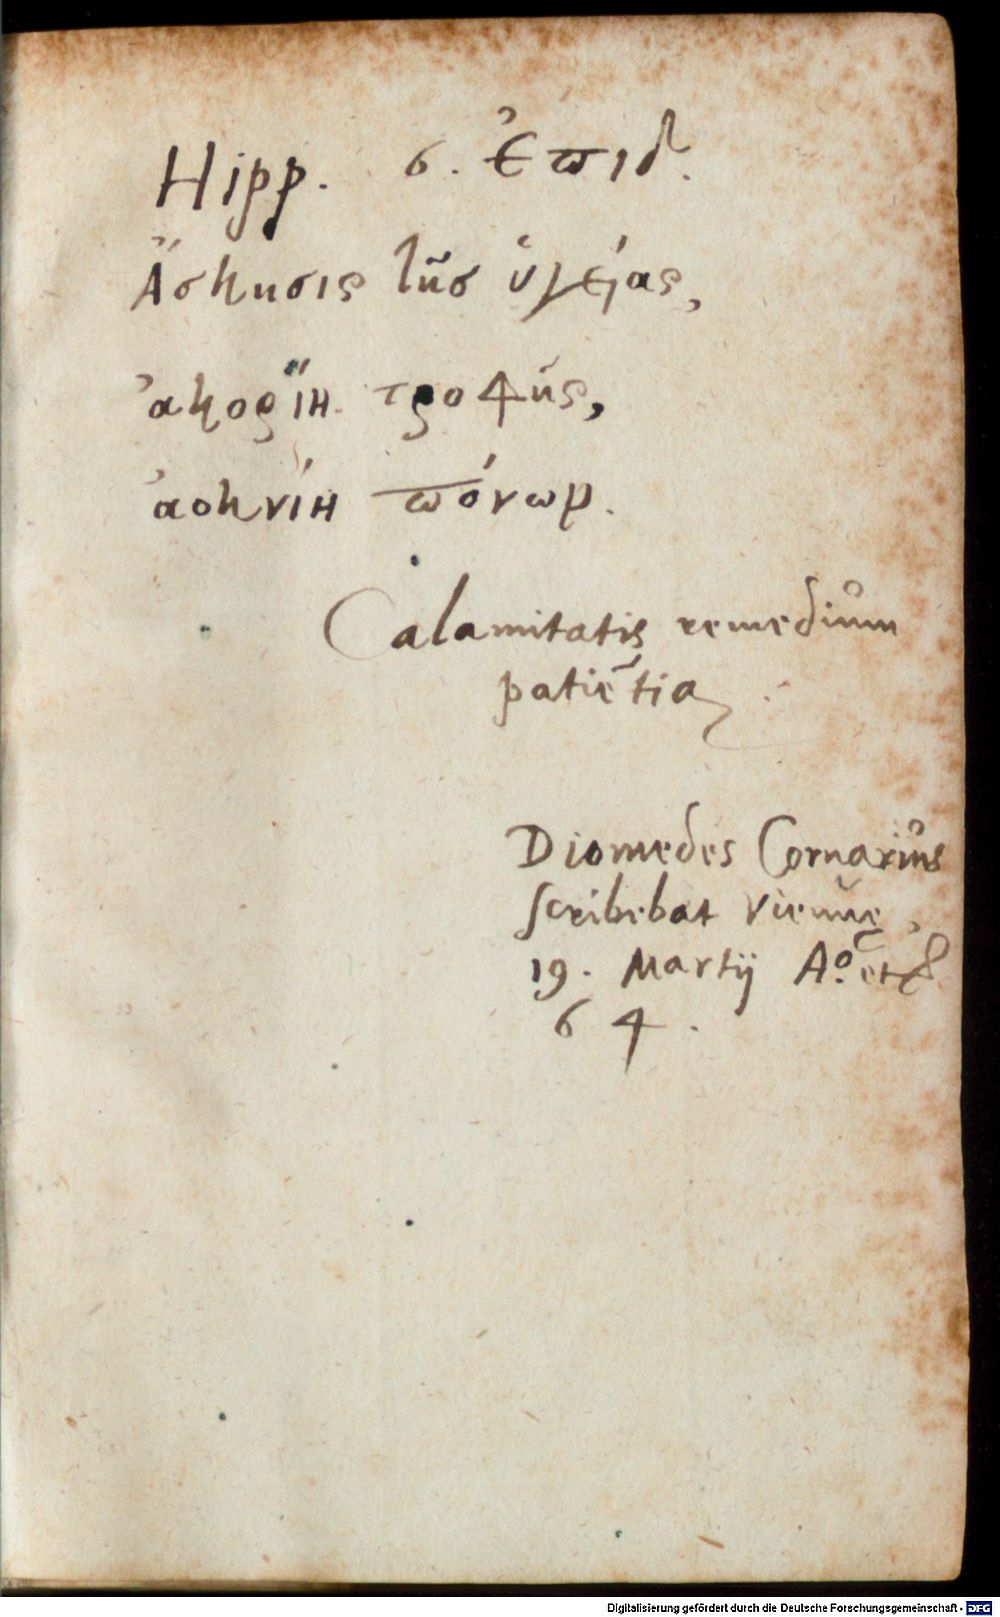 Hipp. 6. ἐπιδ.
Ἄσκησις τῆσ ὑγείας,
ἀκορίη τροφῆς,
ἀοκνίη πόνωρ.
Calamitatis remedium
patiẽtia
Diomedes Cornarius
scribebat Vienne,
19. Martij Aº. etc̃
64.
Digitalisierung gefördert durch die Deutsche Forschungsgemeinschaft - DFG